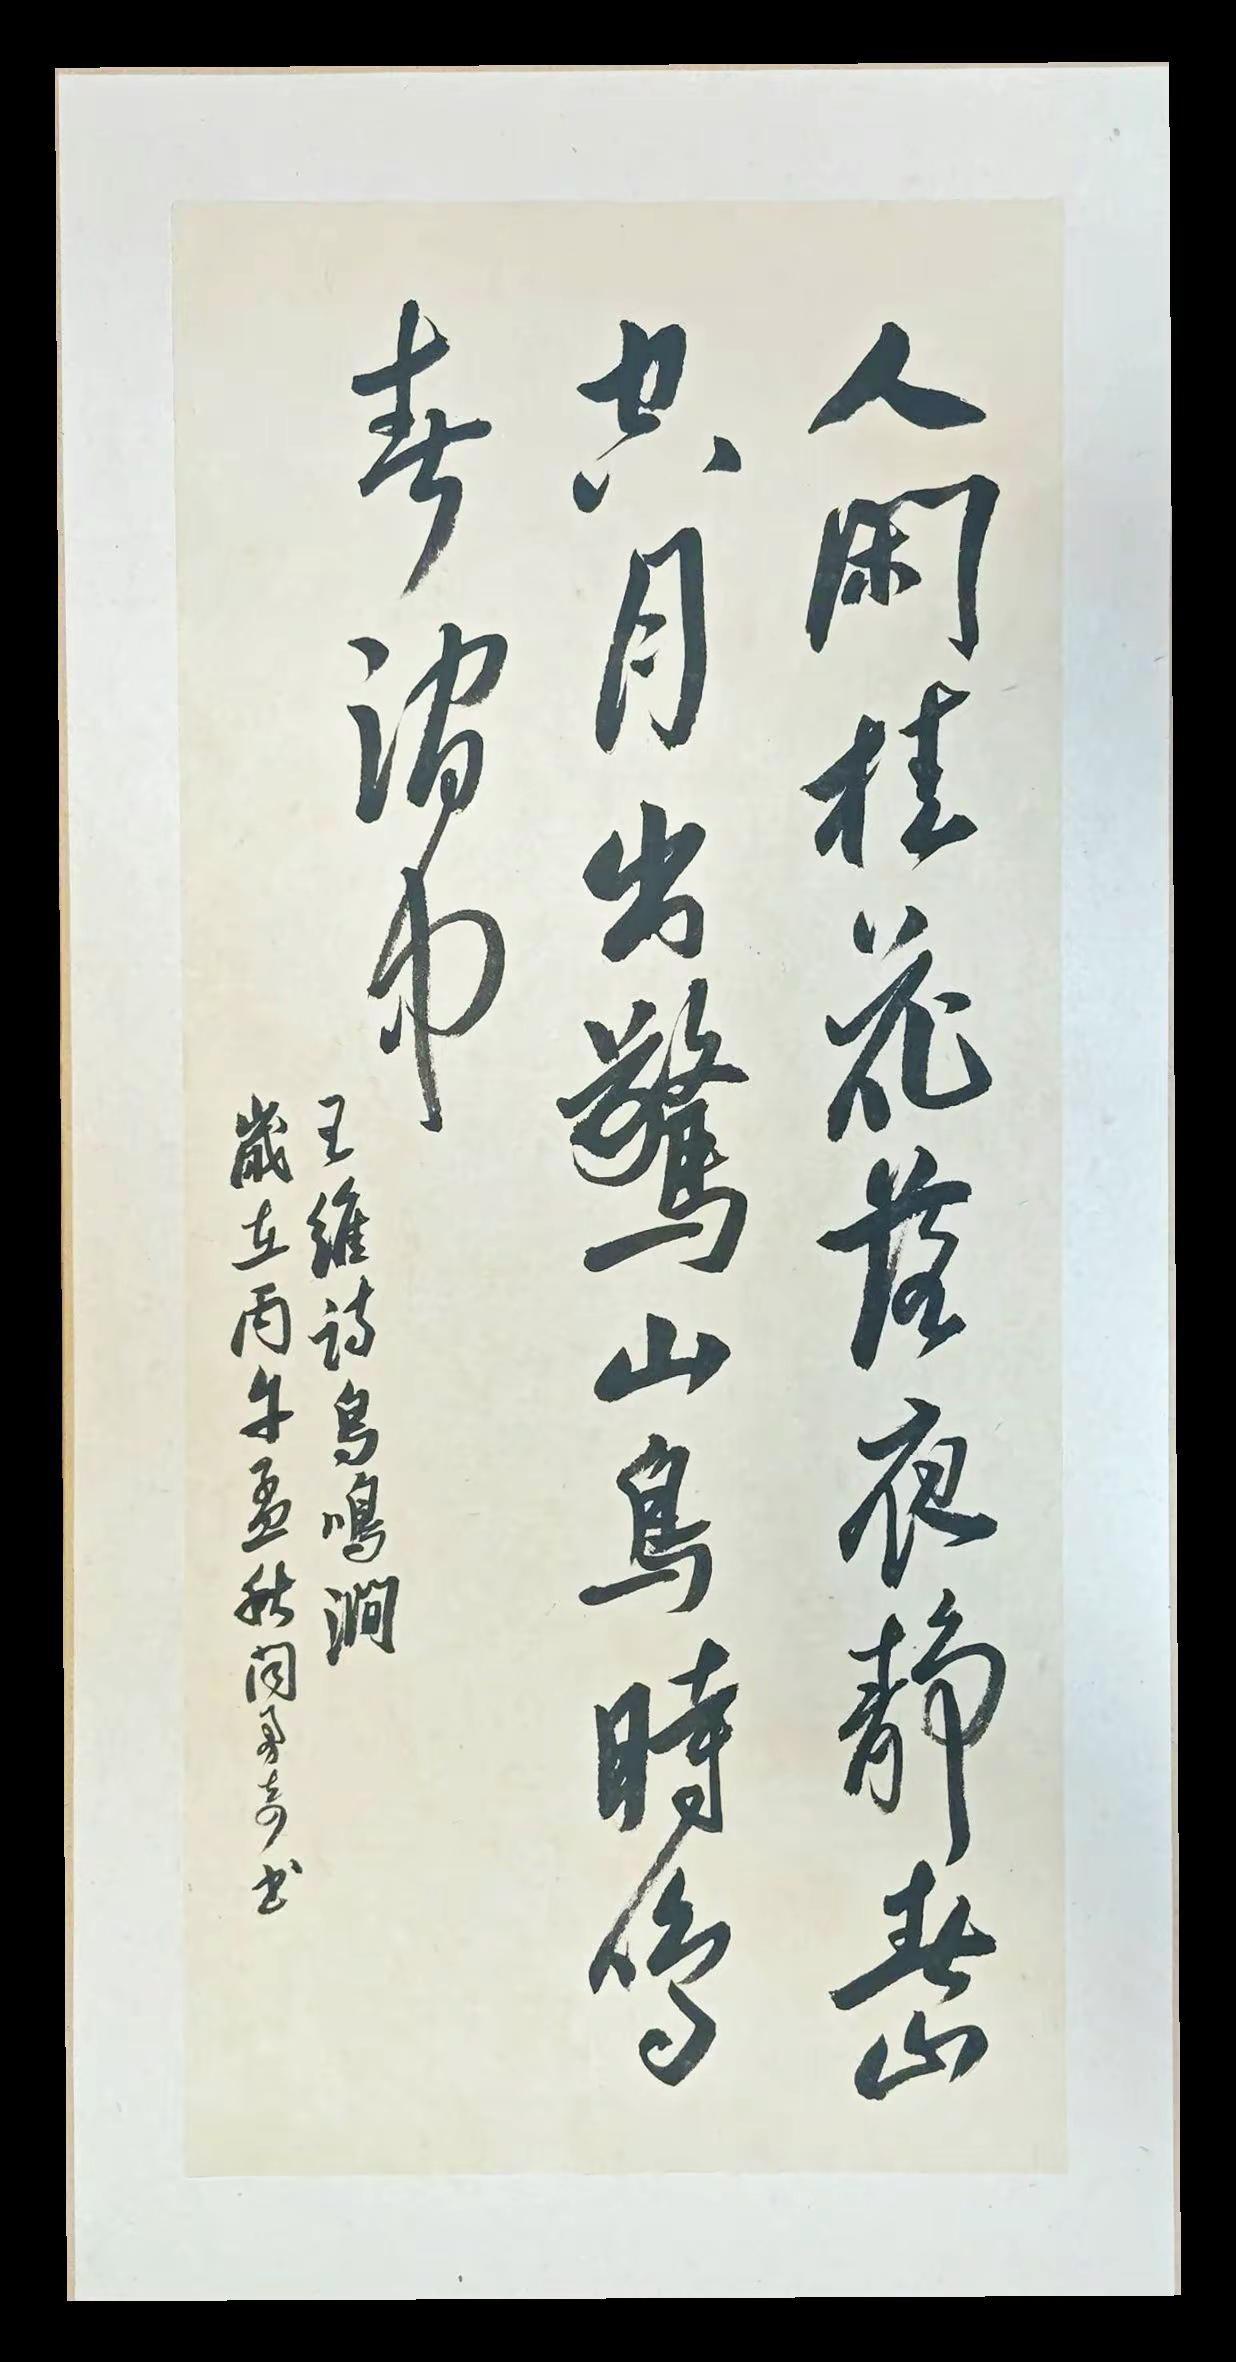 人閑桂花落夜靜春山
空月出驚山鳥時鳴
春澗中
王維詩鳥鳴澗
歲在丙午孟秋閆勇奇书